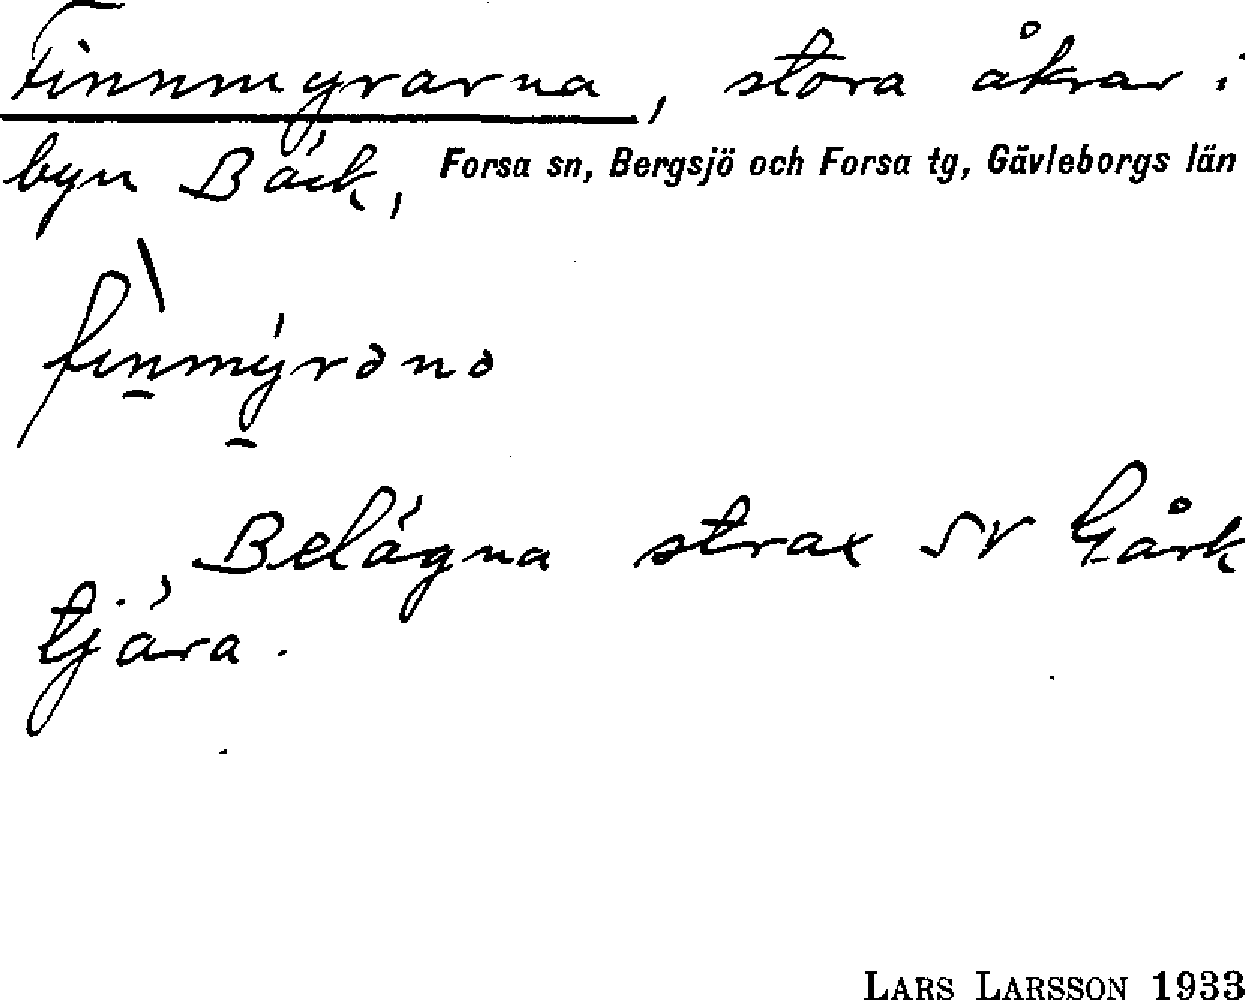 Finnmyrarna, stora åkrar i
byn Bäck, Forsa sn, Bergsjö och Forsa tg, Gävleborgs län
fìnmýrǝnǝ
Belägna strax SV Gårk
tjära.
LARS LARSSON 1933